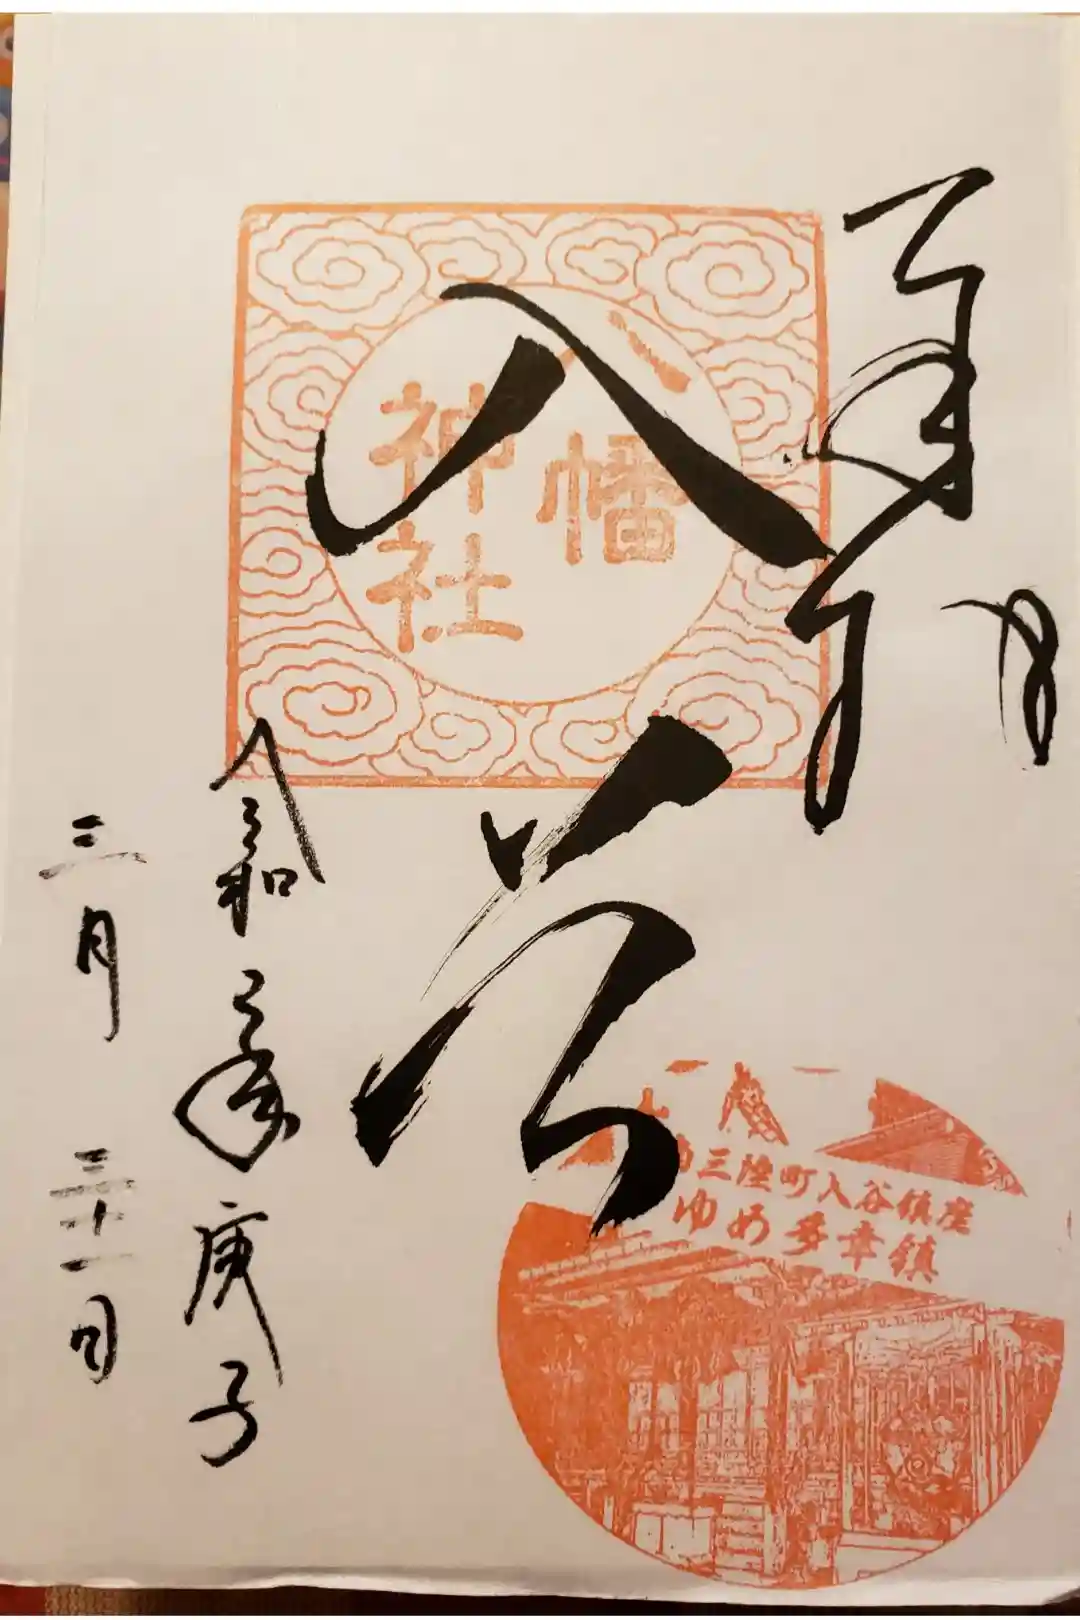 奉拝
入谷
八幡
神社
令和二年庚子
三月三十一日
南三陸町入谷鎮座
ゆめ多幸鎮